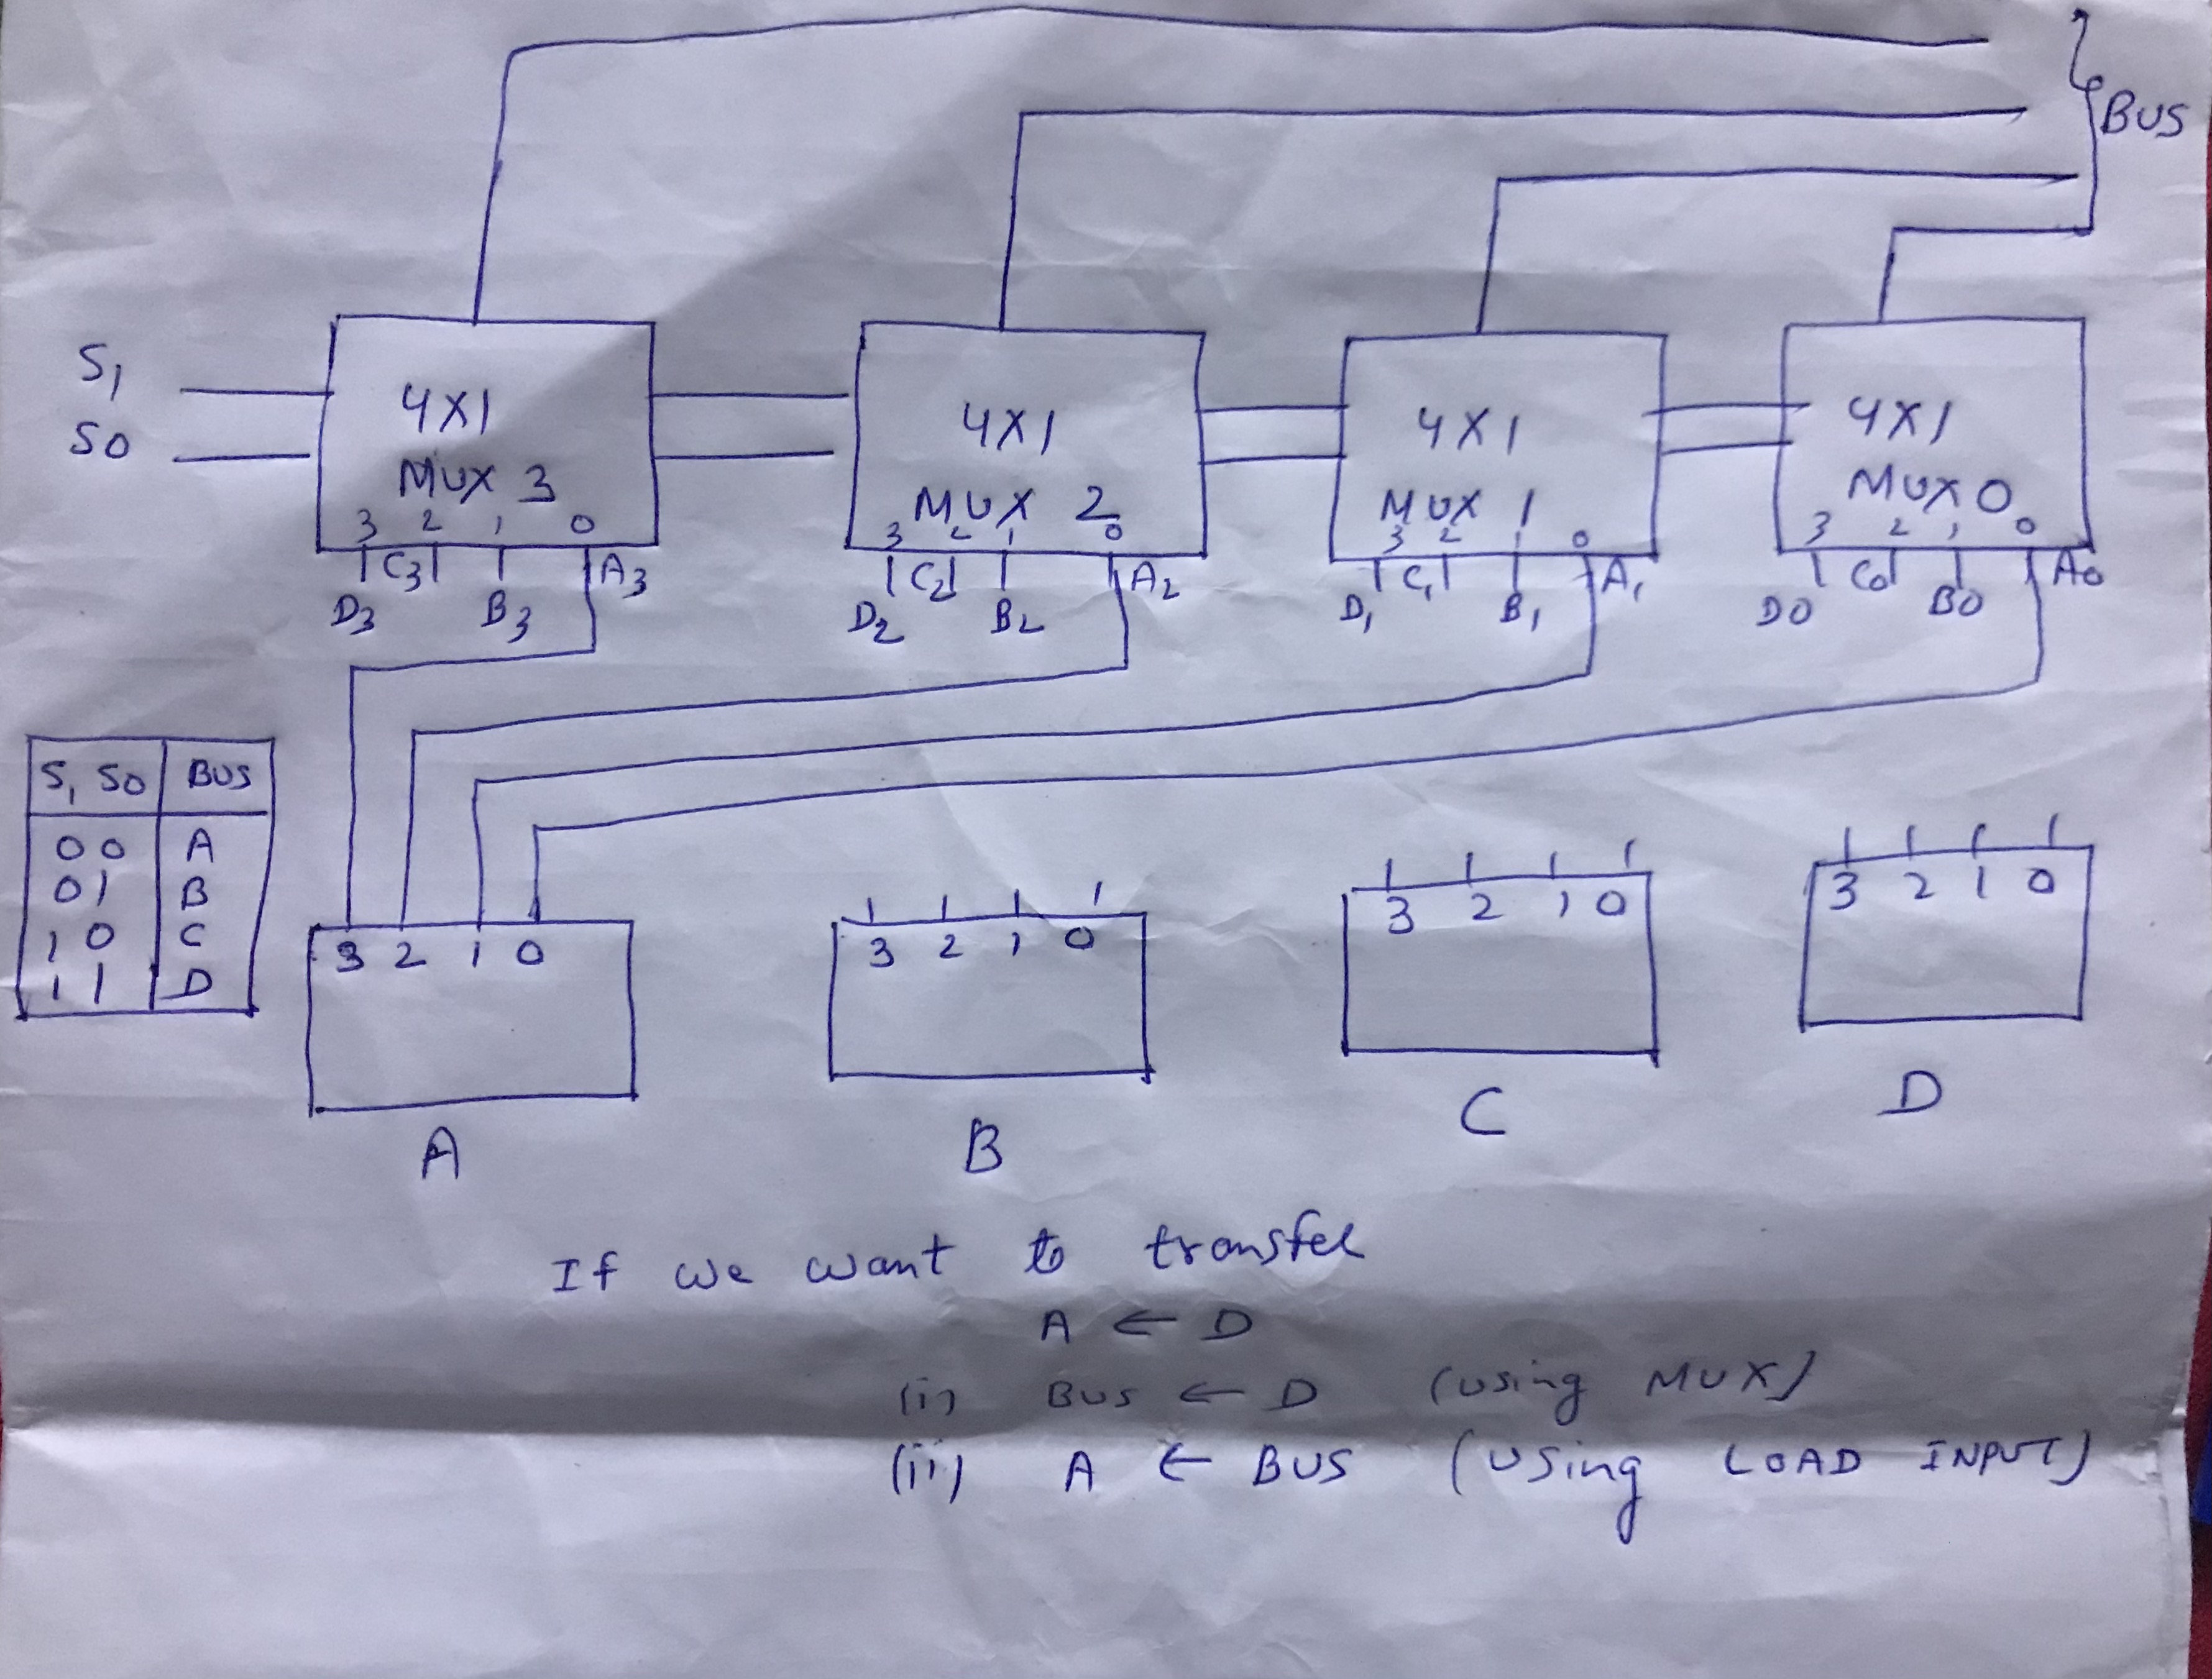 BUS
S1
S0
4X1
MUX 3
3 2 1 0
D3 C3 B3 A3
4X1
MUX 2
3 2 1 0
D2 C2 B2 A2
4X1
MUX 1
3 2 1 0
D1 C1 B1 A1
4X1
MUX 0
3 2 1 0
D0 C0 B0 A0
S1 S0 BUS
0 0 A
0 1 B
1 0 C
1 1 D
3 2 1 0
A
3 2 1 0
B
3 2 1 0
C
3 2 1 0
D
If we want to transfer
A ← D
(i) BUS ← D (using MUX)
(ii) A ← BUS (Using LOAD INPUT)